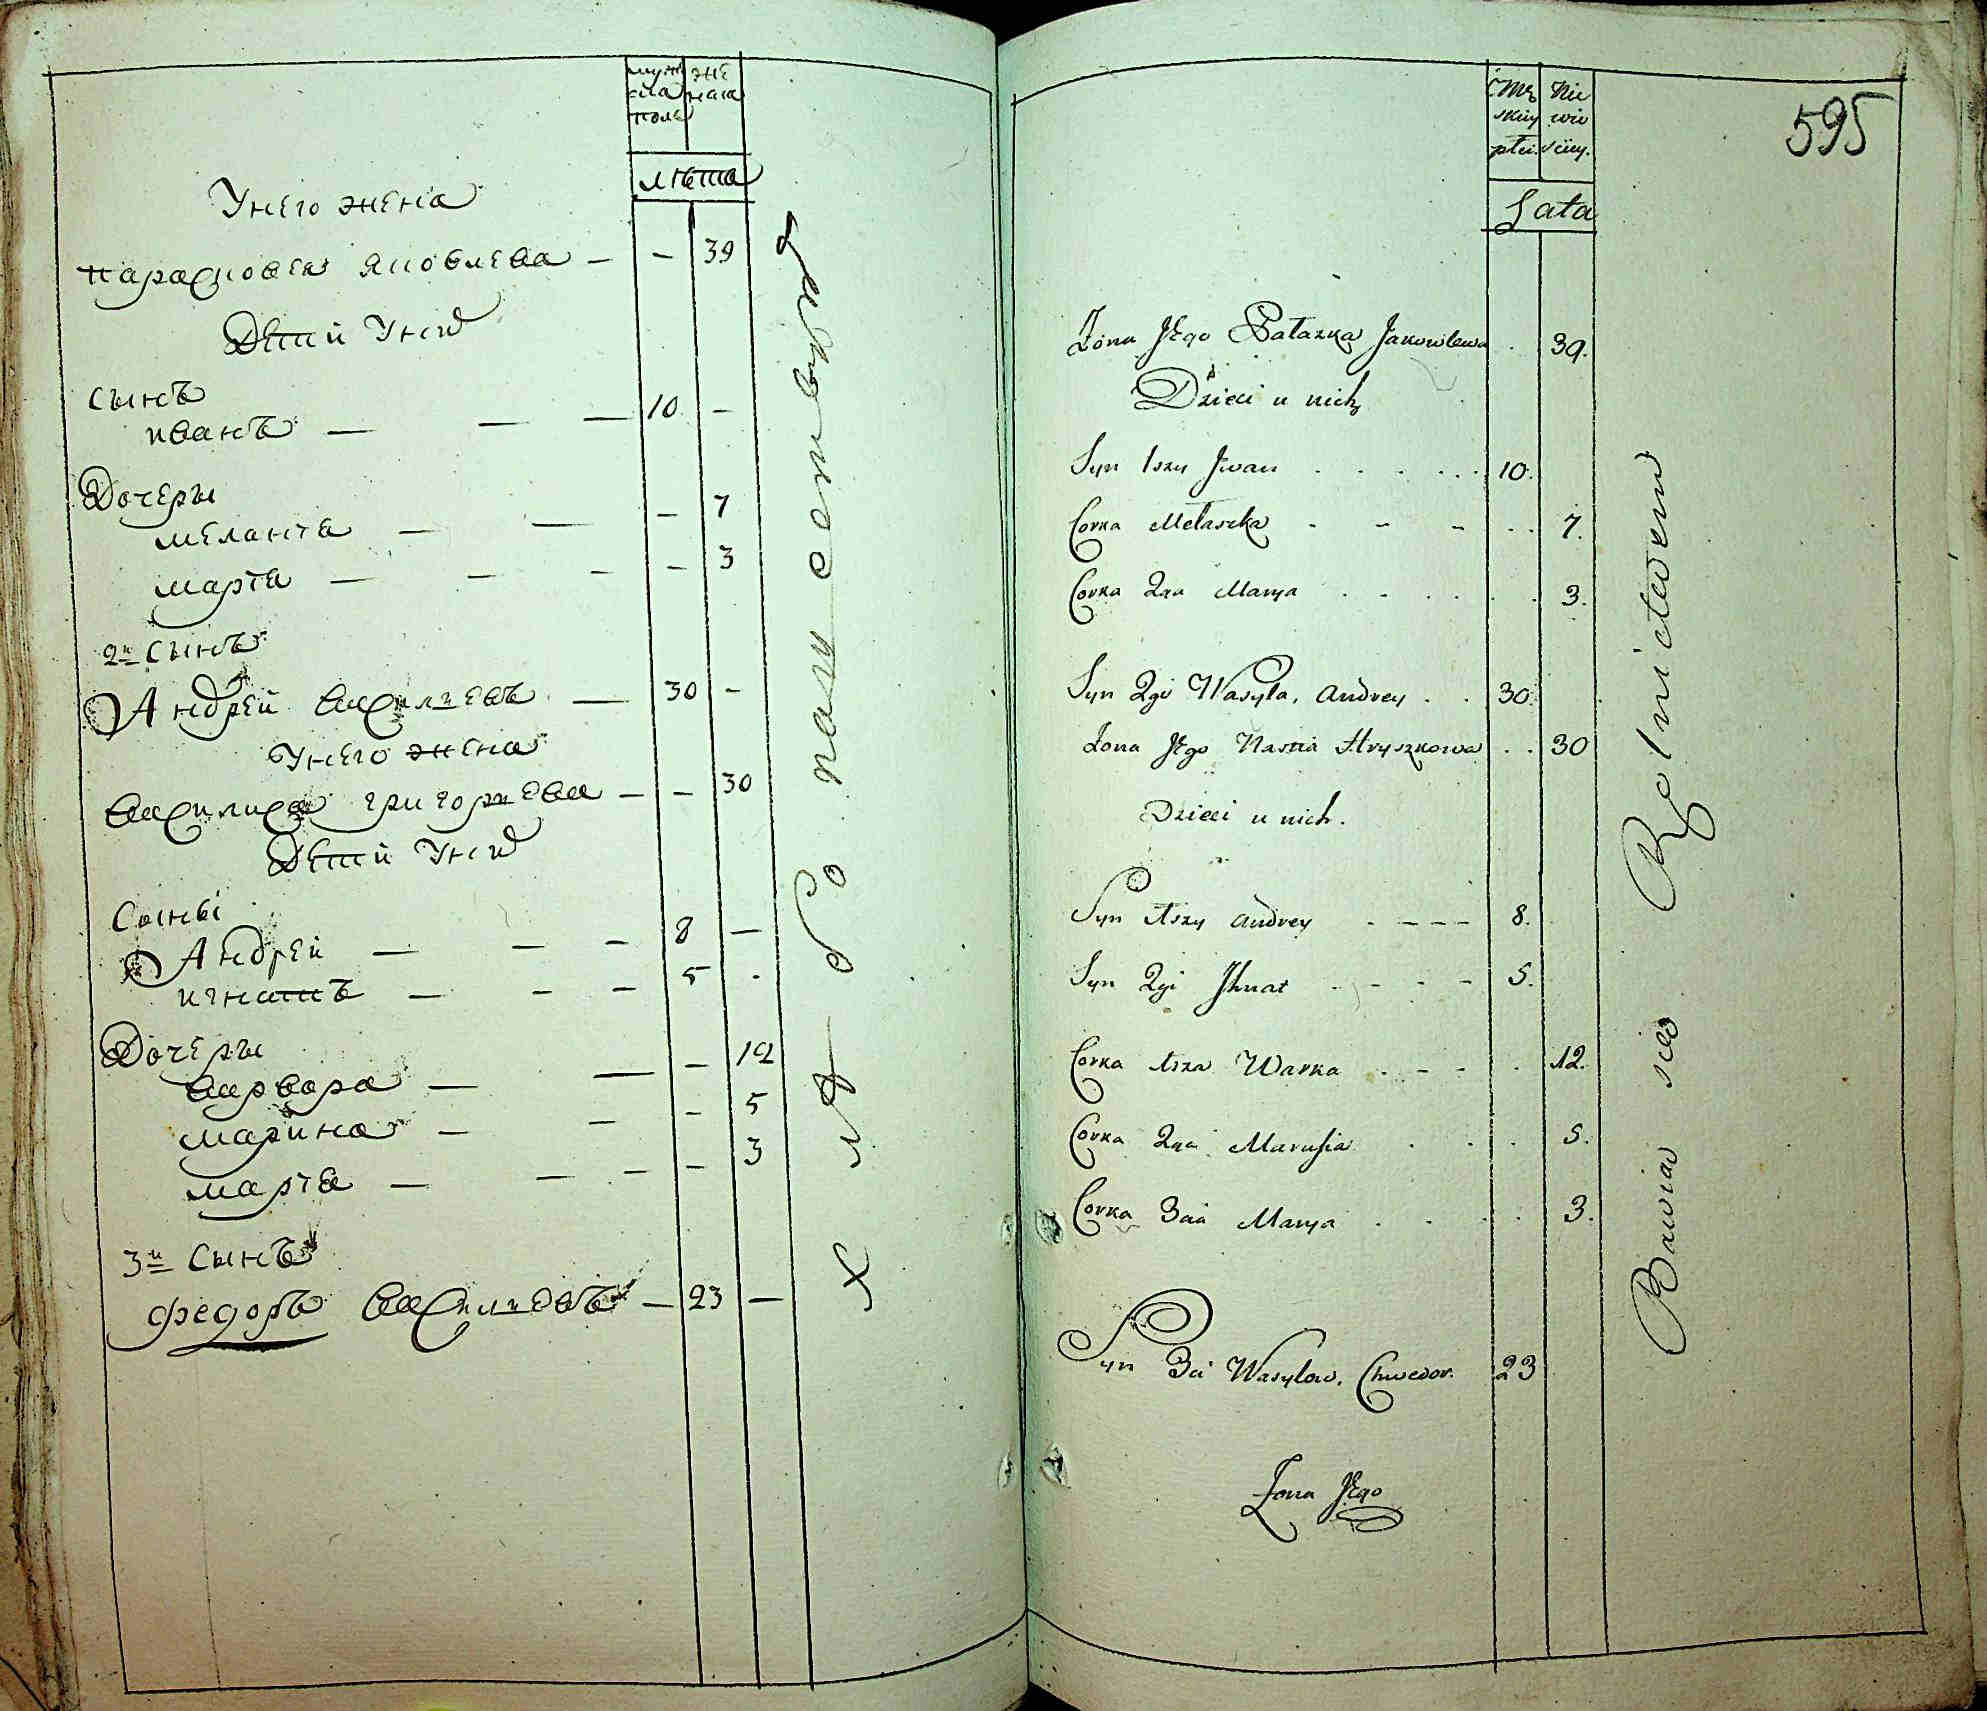 муж
ска
полѣ
же
нска
лѣта
Унего жена
парасковея яковлева — — 39
Дѣтй Унихъ
сынъ
иванъ — — — 10 —
Дочеры
меланія — — — 7
марія — — — — 3
2й сынъ
Андрей василиевъ — 30 —
Унего жена
василиса григориева — — 30
Дѣтй Унихъ
Сыны
Андрей — — — 8 —
игнатъ — — — 5 -
Дочеры
варвара — — — 12
марина — — — 5
марія — — — — 3
3й сынъ
федоръ василиевъ — 23 —
хлѣбопашествуютъ
Męs
skiey
płci.
Nie
wie
sciey.
Lata
595
Zona Jego Pałazka Jakowlewa . 39.
Dzieci u nich
Syn 1szy Jwan . . . . . 10.
Corka Mełaszka - - - . . 7.
Corka 2ga Marya . . . . . . 3.
Syn 2gi Wasyla, Andrey . . 30
Zona Jego Nastia Hryszkowa . . 30
Dzieci u nich.
Syn 1szy Andrey - - - - 8.
Syn 2gi Jhnat - - - - 5.
Corka 1sza Warka . - - . 12.
Corka 2ga Marusia . . . 5.
Corka 3cia Marya . . . . 3.
Syn 3ci Wasylow, Chwedor. 23
Zona Jego
Bawią się Rolnictwem